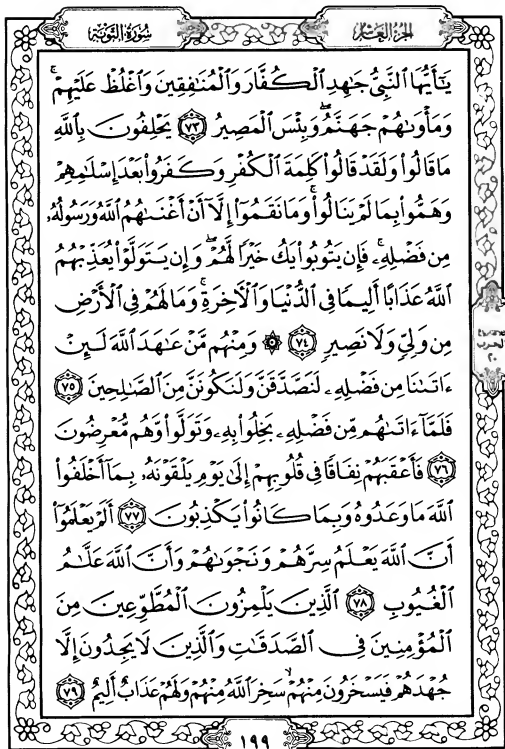 سُورَةُ التَّوْبَةِ
الجُزْءُ العَاشِرُ
يَٰٓأَيُّهَا ٱلنَّبِيُّ جَٰهِدِ ٱلْكُفَّارَ وَٱلْمُنَٰفِقِينَ وَٱغْلُظْ عَلَيْهِمْ ۚ
وَمَأْوَىٰهُمْ جَهَنَّمُ ۖ وَبِئْسَ ٱلْمَصِيرُ ﴿٧٣﴾ يَحْلِفُونَ بِٱللَّهِ
مَا قَالُوا۟ وَلَقَدْ قَالُوا۟ كَلِمَةَ ٱلْكُفْرِ وَكَفَرُوا۟ بَعْدَ إِسْلَٰمِهِمْ
وَهَمُّوا۟ بِمَا لَمْ يَنَالُوا۟ ۚ وَمَا نَقَمُوٓا۟ إِلَّآ أَنْ أَغْنَىٰهُمُ ٱللَّهُ وَرَسُولُهُۥ
مِن فَضْلِهِۦ ۚ فَإِن يَتُوبُوا۟ يَكُ خَيْرًا لَّهُمْ ۖ وَإِن يَتَوَلَّوْا۟ يُعَذِّبْهُمُ
ٱللَّهُ عَذَابًا أَلِيمًا فِى ٱلدُّنْيَا وَٱلْءَاخِرَةِ ۚ وَمَا لَهُمْ فِى ٱلْأَرْضِ
مِن وَلِىٍّ وَلَا نَصِيرٍ ﴿٧٤﴾ ۞ وَمِنْهُم مَّنْ عَٰهَدَ ٱللَّهَ لَئِنْ
ءَاتَىٰنَا مِن فَضْلِهِۦ لَنَصَّدَّقَنَّ وَلَنَكُونَنَّ مِنَ ٱلصَّٰلِحِينَ ﴿٧٥﴾
فَلَمَّآ ءَاتَىٰهُم مِّن فَضْلِهِۦ بَخِلُوا۟ بِهِۦ وَتَوَلَّوا۟ وَّهُم مُّعْرِضُونَ
﴿٧٦﴾ فَأَعْقَبَهُمْ نِفَاقًا فِى قُلُوبِهِمْ إِلَىٰ يَوْمِ يَلْقَوْنَهُۥ بِمَآ أَخْلَفُوا۟
ٱللَّهَ مَا وَعَدُوهُ وَبِمَا كَانُوا۟ يَكْذِبُونَ ﴿٧٧﴾ أَلَمْ يَعْلَمُوٓا۟
أَنَّ ٱللَّهَ يَعْلَمُ سِرَّهُمْ وَنَجْوَىٰهُمْ وَأَنَّ ٱللَّهَ عَلَّٰمُ
ٱلْغُيُوبِ ﴿٧٨﴾ ٱلَّذِينَ يَلْمِزُونَ ٱلْمُطَّوِّعِينَ مِنَ
ٱلْمُؤْمِنِينَ فِى ٱلصَّدَقَٰتِ وَٱلَّذِينَ لَا يَجِدُونَ إِلَّا
جُهْدَهُمْ فَيَسْخَرُونَ مِنْهُمْ ۙ سَخِرَ ٱللَّهُ مِنْهُمْ وَلَهُمْ عَذَابٌ أَلِيمٌ ﴿٧٩﴾
الحزب
٢٠
١٩٩